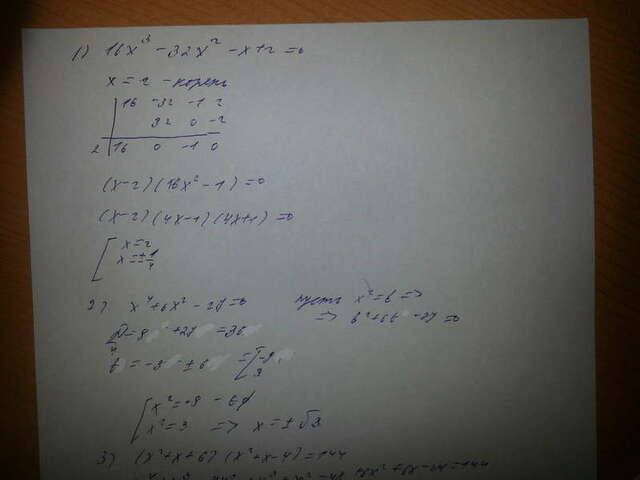 1) 16x³ - 32x² - x + 2 = 0
x = 2 - корень
16 -32 -1 2
32 0 -2
2 16 0 -1 0
(x-2)(16x² - 1) = 0
(x-2)(4x-1)(4x+1) = 0
[ x = 2
x = ± 1/4
2) x⁴ + 6x² - 27 = 0 пусть x² = t =>
=> t² + 6t - 27 = 0
= 9 + 27 = 36
t = -3 ± 6 = [ -9
3
[ x² = -9
x² = 3 => x = ± √3
3) (x² + x + 6)(x² + x - 4) = 144